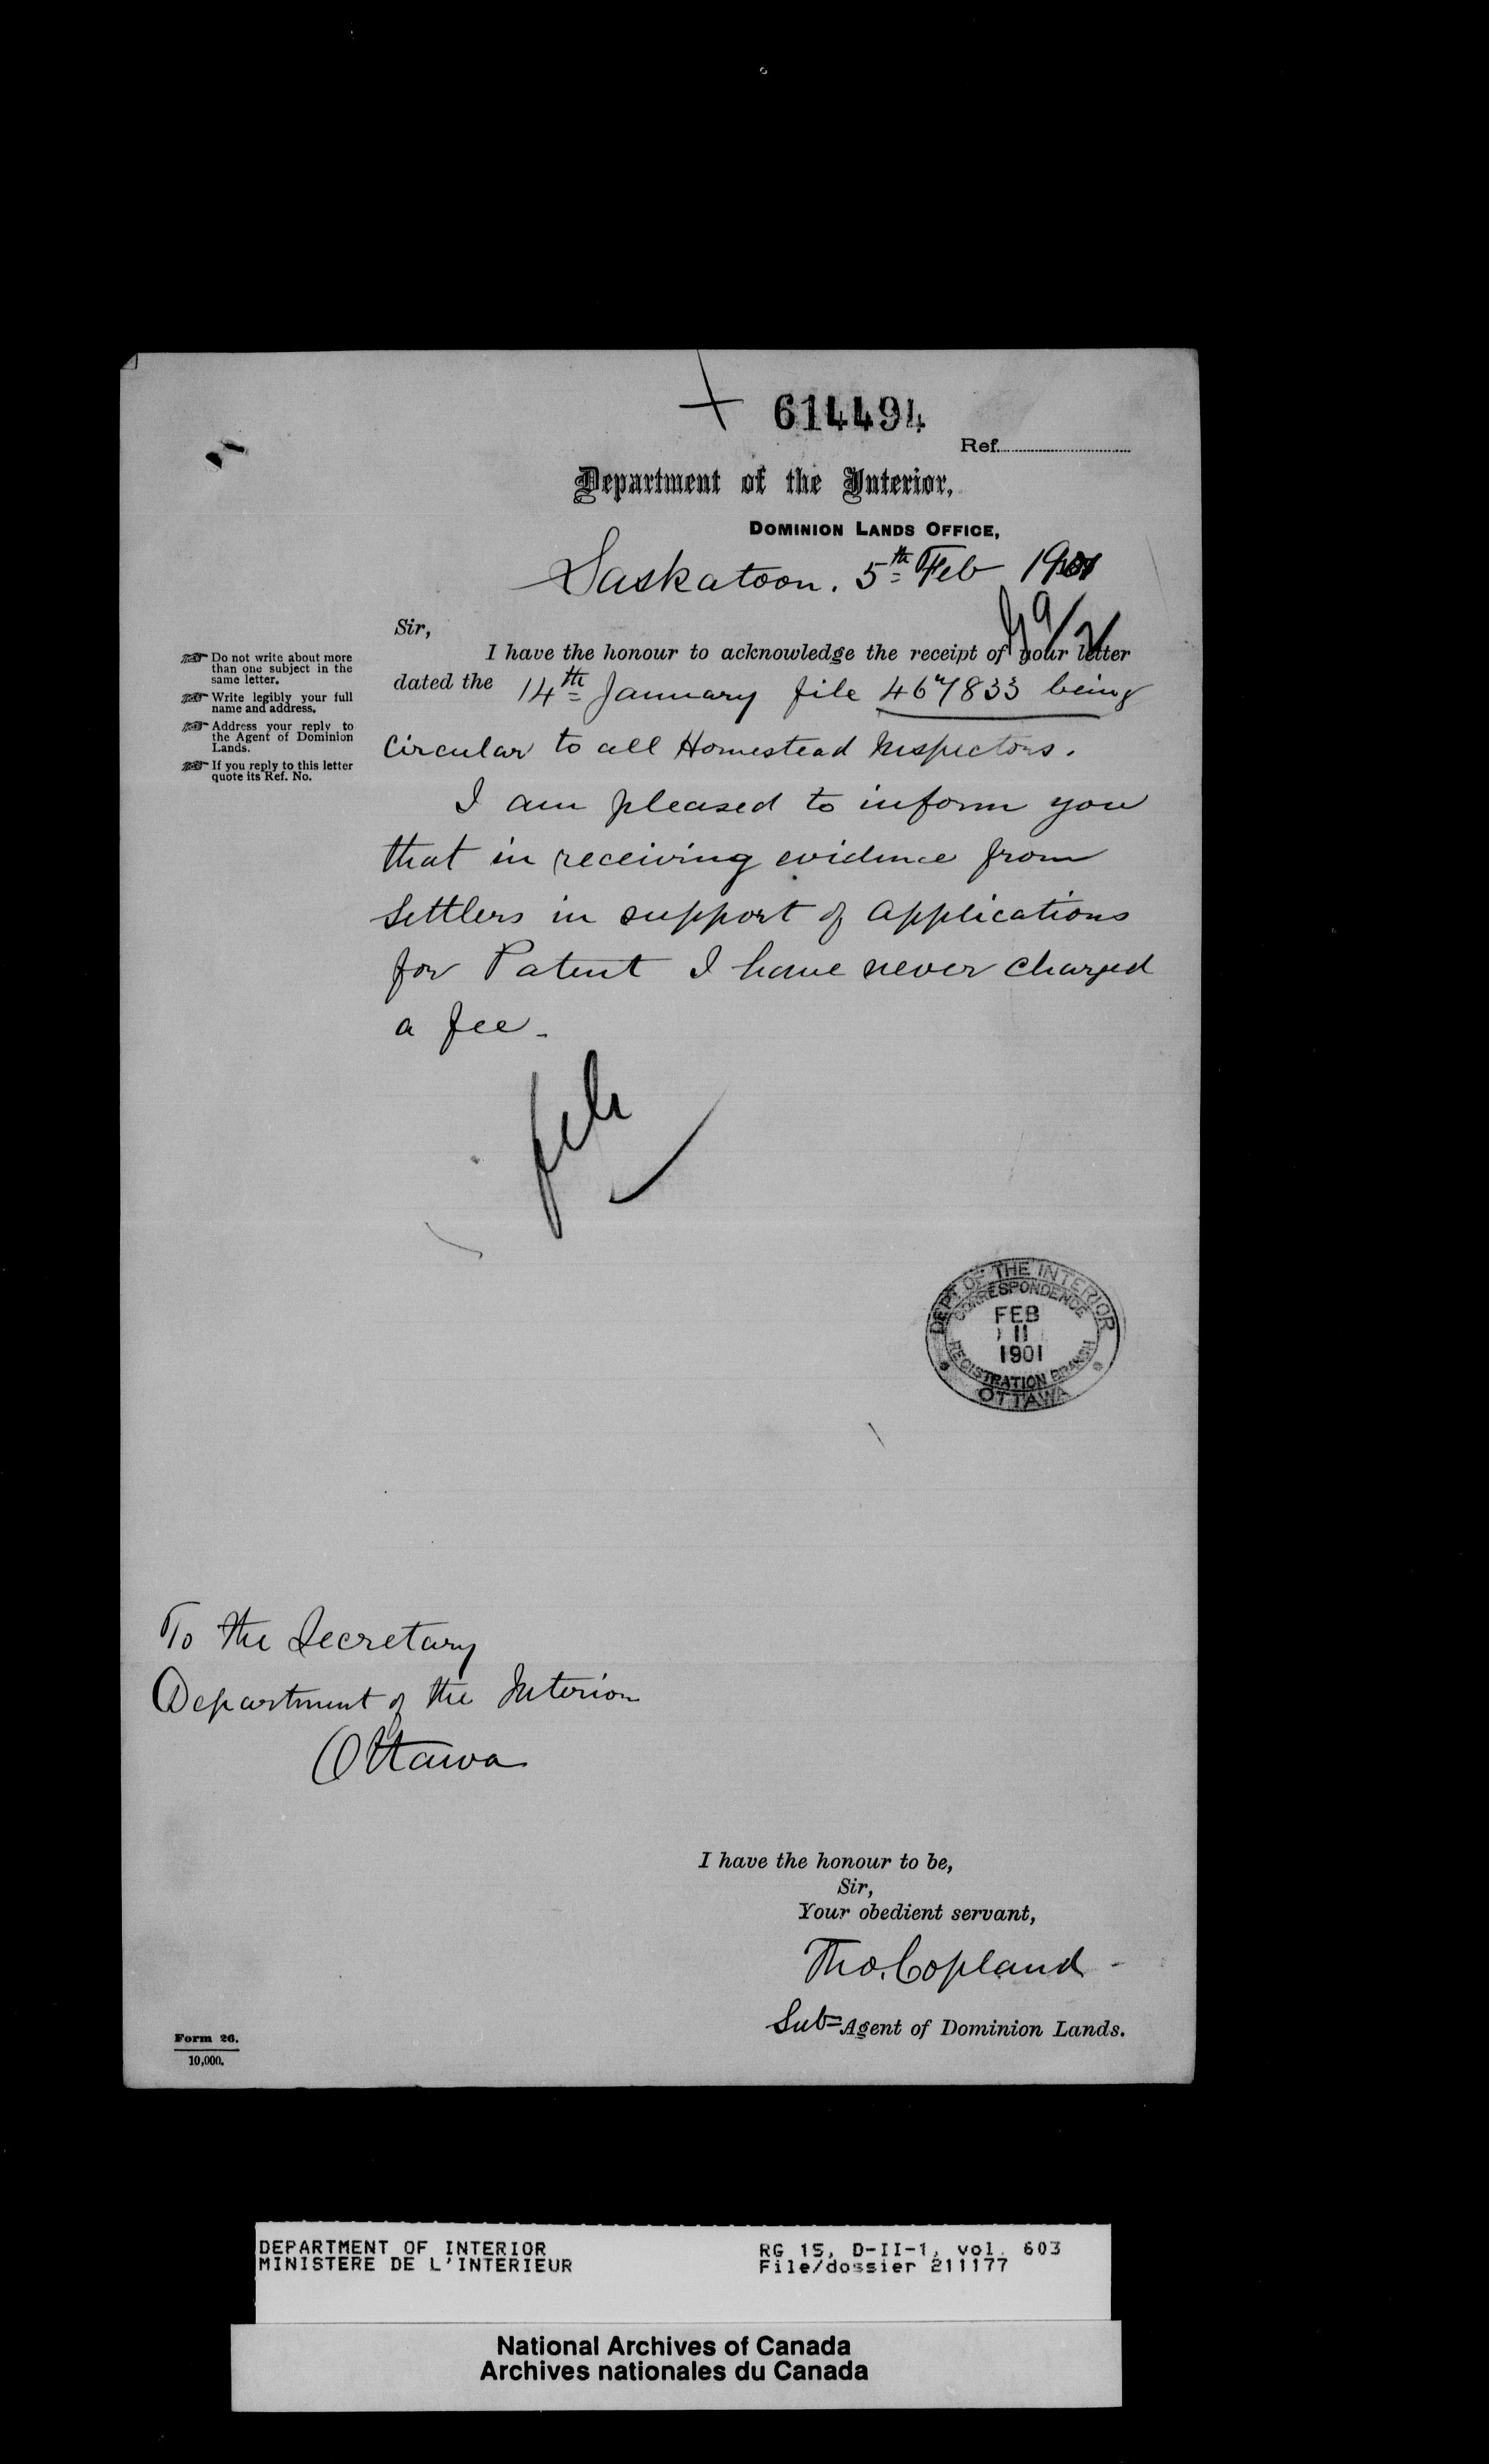 614494
Ref.
Department of the Interior,
DOMINION LANDS OFFICE,
Saskatoon. 5th Feb 1901
Sir,
I have the honour to acknowledge the receipt of your letter
dated the 14th January file 467833 being
Circular to all Homestead Inspectors.
I am pleased to inform you
that in receiving evidence from
Settlers in support of Applications
for Patent I have never charged
a fee.
Do not write about more
than one subject in the
same letter.
Write legibly your full
name and address.
Address your reply to
the Agent of Dominion
Lands.
If you reply to this letter
quote its Ref. No.
file
DEPT OF THE INTERIOR
CORRESPONDENCE
FEB
11
1901
REGISTRATION BRANCH
OTTAWA
To the Secretary
Department of the Interior
Ottawa
I have the honour to be,
Sir,
Your obedient servant,
Tho. Copland
Sub-Agent of Dominion Lands.
Form 26.
10,000.
DEPARTMENT OF INTERIOR
MINISTERE DE L'INTERIEUR
RG 15, D-II-1, vol. 603
File/dossier 211177
National Archives of Canada
Archives nationales du Canada